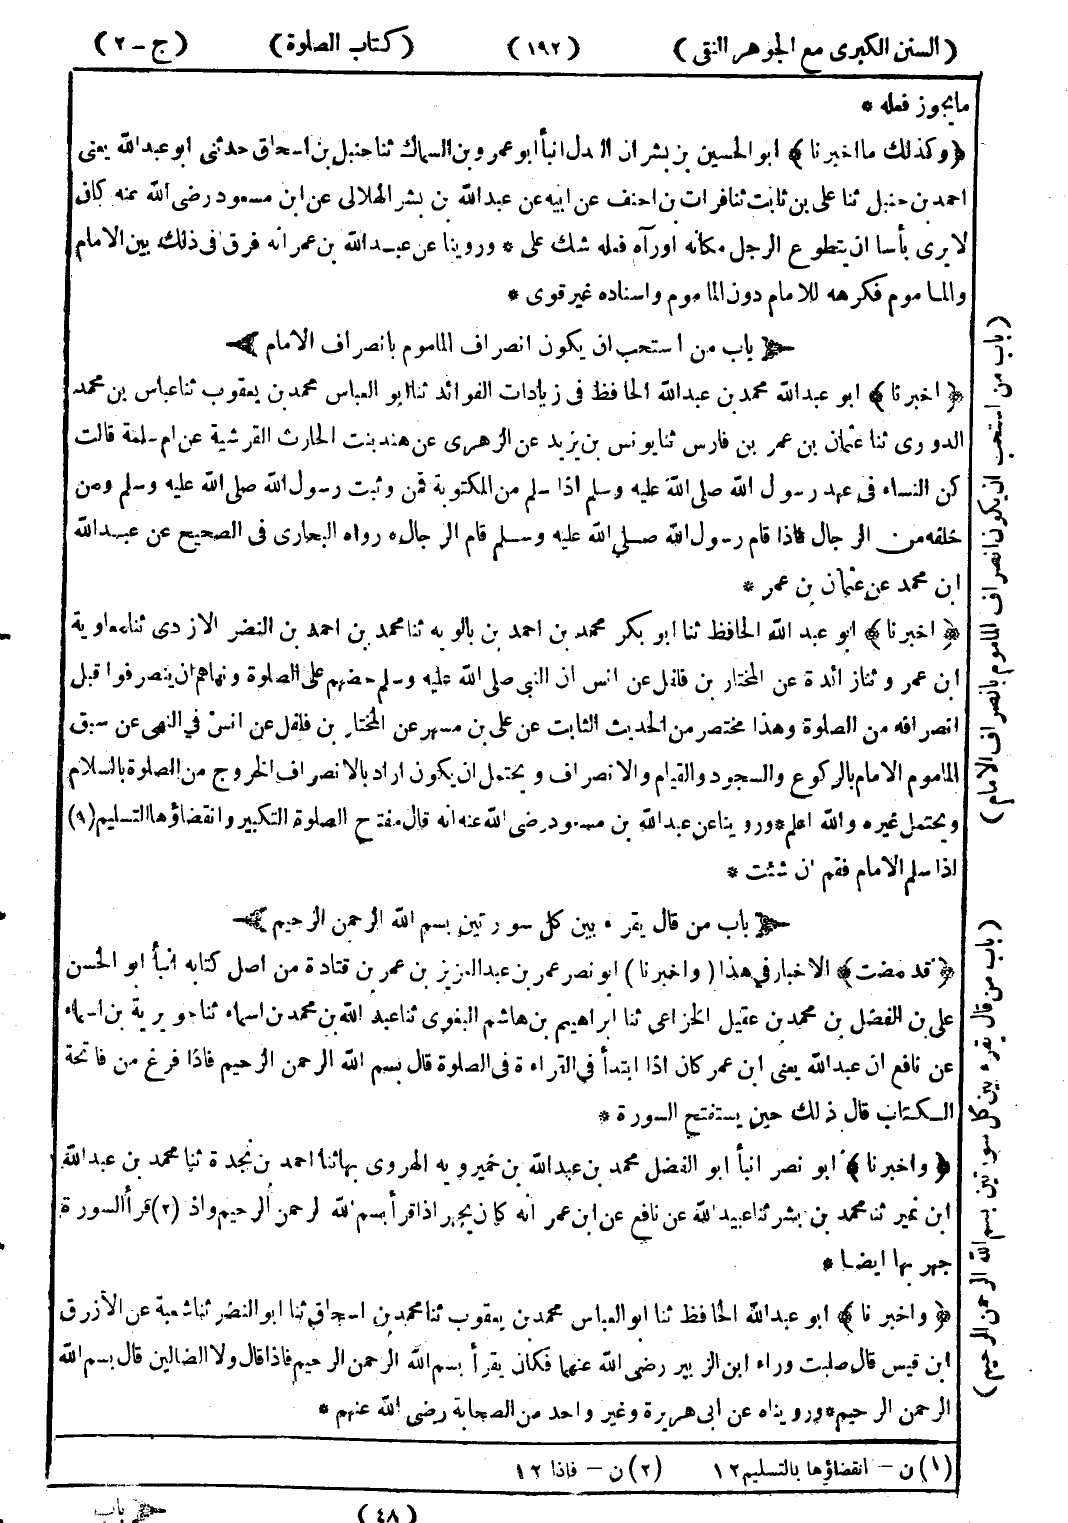 (السنن الكبرى مع الجوهر النقى) (١٩٢) (كتاب الصلوة) (ج-٢)
مايجوز فعله *
﴿وكذلك مااخبرنا﴾ ابوالحسين بن بشران العدل انبأ ابوعمرو بن السماك ثنا حنبل بن اسحاق حدثنى ابوعبدالله يعنى
احمد بن حنبل ثنا على بن ثابت ثنا فرات بن احنف عن ابيه عن عبدالله بن بشر الهلالى عن ابن مسعود رضى الله عنه كان
لايرى بأسا ان يتطوع الرجل مكانه اورآه فعله شك على * وروينا عن عبدالله بن عمر انه فرق فى ذلك بين الامام
والماموم فكرهه للامام دون الماموم واسناده غير قوى *
باب من استحب ان يكون انصراف الماموم بانصراف الامام
﴿اخبرنا﴾ ابو عبدالله محمد بن عبدالله الحافظ فى زيادات الفوائد ثنا ابو العباس محمد بن يعقوب ثنا عباس بن محمد
الدورى ثنا عثمان بن عمر بن فارس ثنا يونس بن يزيد عن الزهرى عن هند بنت الحارث القرشية عن ام سلمة قالت
كن النساء فى عهد رسول الله صلى الله عليه وسلم اذا سلم من المكتوبة قمن وثبت رسول الله صلى الله عليه وسلم ومن
خلفه من الرجال فاذا قام رسول الله صلى الله عليه وسلم قام الرجال ه رواه البخارى فى الصحيح عن عبدالله
ابن محمد عن عثمان بن عمر *
﴿اخبرنا﴾ ابو عبد الله الحافظ ثنا ابو بكر محمد بن احمد بن بالويه ثنا محمد بن احمد بن النضر الازدى ثنا معاوية
ابن عمرو ثنا زائدة عن المختار بن فلفل عن انس ان النبى صلى الله عليه وسلم حضهم على الصلوة ونهاهم ان ينصرفوا قبل
انصرافه من الصلوة وهذا مختصر من الحديث الثابت عن على بن مسهر عن المختار بن فلفل عن انس فى النهى عن سبق
الماموم الامام بالركوع والسجود والقيام والانصراف ويحتمل ان يكون اراد بالانصراف الخروج من الصلوة بالسلام
ويحتمل غيره والله اعلم * وروينا عن عبدالله بن مسعود رضى الله عنه انه قال مفتاح الصلوة التكبير وانقضاؤها التسليم (١)
اذا سلم الامام فقم ان شئت *
باب من قال يقرء بين كل سورتين بسم الله الرحمن الرحيم
﴿قد مضت﴾ الاخبار فى هذا (واخبرنا) ابو نصر عمر بن عبدالعزيز بن عمر بن قتادة من اصل كتابه انبأ ابو الحسن
على بن الفضل بن محمد بن عقيل الخزاعى ثنا ابراهيم بن هاشم البغوى ثنا عبد الله بن محمد بن اسماء ثنا جويرية بن اسماء
عن نافع ان عبدالله يعنى ابن عمر كان اذا ابتدأ فى القراءة فى الصلوة قال بسم الله الرحمن الرحيم فاذا فرغ من فاتحة
الكتاب قال ذلك حين يستفتح السورة *
﴿واخبرنا﴾ ابو نصر انبأ ابو الفضل محمد بن عبدالله بن خميرويه الهروى بها ثنا احمد بن نجدة ثنا محمد بن عبدالله
ابن نمير ثنا محمد بن بشر ثنا عبيد الله عن نافع عن ابن عمر انه كان يجهر اذا قرأ بسم الله الرحمن الرحيم واذ (٢) قرأ السورة
جهر بها ايضا *
﴿واخبرنا﴾ ابو عبدالله الحافظ ثنا ابو العباس محمد بن يعقوب ثنا محمد بن اسحاق ثنا ابو النضر ثنا شعبة عن الأزرق
ابن قيس قال صليت وراء ابن الزبير رضى الله عنهما فكان يقرأ بسم الله الرحمن الرحيم فاذا قال ولا الضالين قال بسم الله
الرحمن الرحيم * ورويناه عن ابى هريرة وغير واحد من الصحابة رضى الله عنهم *
(١) ن - انقضاؤها بالتسليم ١٢ (٢) ن - فاذا ١٢
(٤٨) باب
(باب من استحب ان يكون انصراف الماموم بانصراف الامام)
(باب من قال يقرء بين كل سورتين بسم الله الرحمن الرحيم)